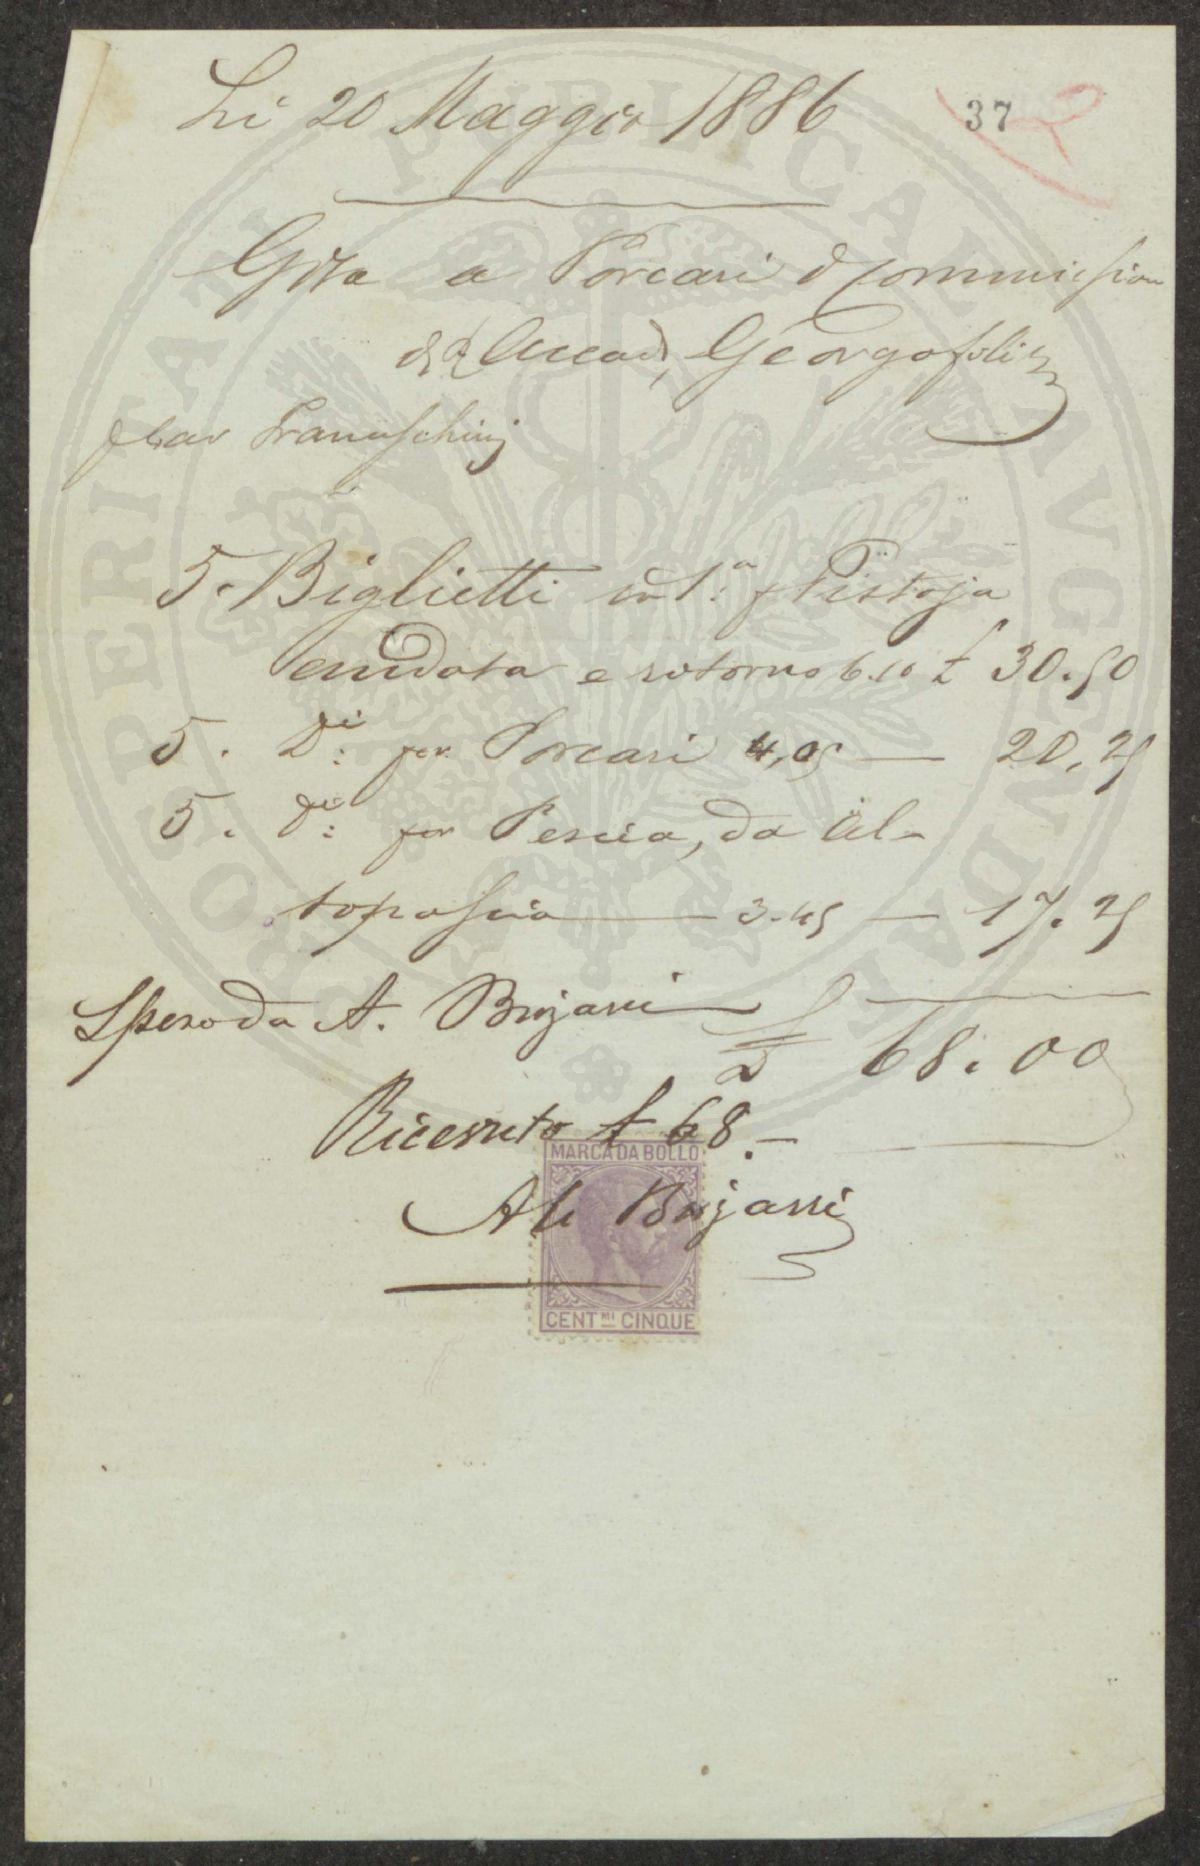 Li 20 Maggio 1886
37
Gita a Porcari d Commission
Accad, Georgofili
Franceschinj
5. Biglietti 1.a Pistoja
andata e ritorno 6.10 £ 30.50
5. Di: per Porcari 4,05 — 20,25
5. Di: per Pescia, da Al-
topascio — 3.45 — 17.25
Speso da A. Bujani
£ 68.00
Ricevuto £ 68.—
MARCA DA BOLLO
Bujani
CENT.MI CINQUE
PROSPERITATI PUBLICAE AVGENDAE